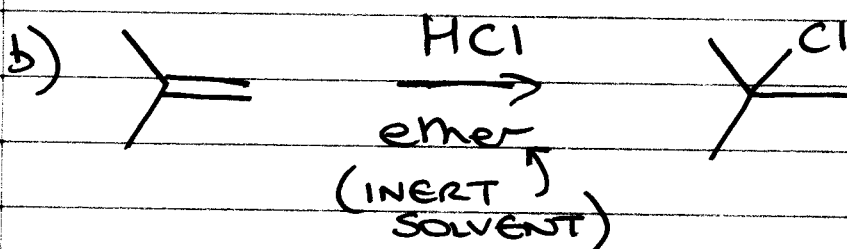 b)
HCl
Cl
ether
(INERT
SOLVENT)